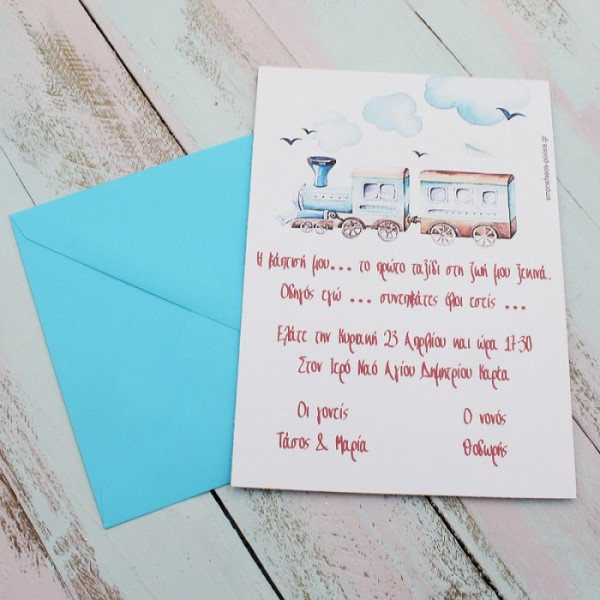 Η βάπτισή μου... το πρώτο ταξίδι στη ζωή μου ξεκινά..
Οδηγός εγώ ... συνεπιβάτες όλοι εσείς ...
Ελάτε την Κυριακή 23 Απριλίου και ώρα 17:30
Στον Ιερό Ναό Αγίου Δημητρίου Καρέα
Οι γονείς
Τάσος & Μαρία
Ο νονός
Θοδωρής